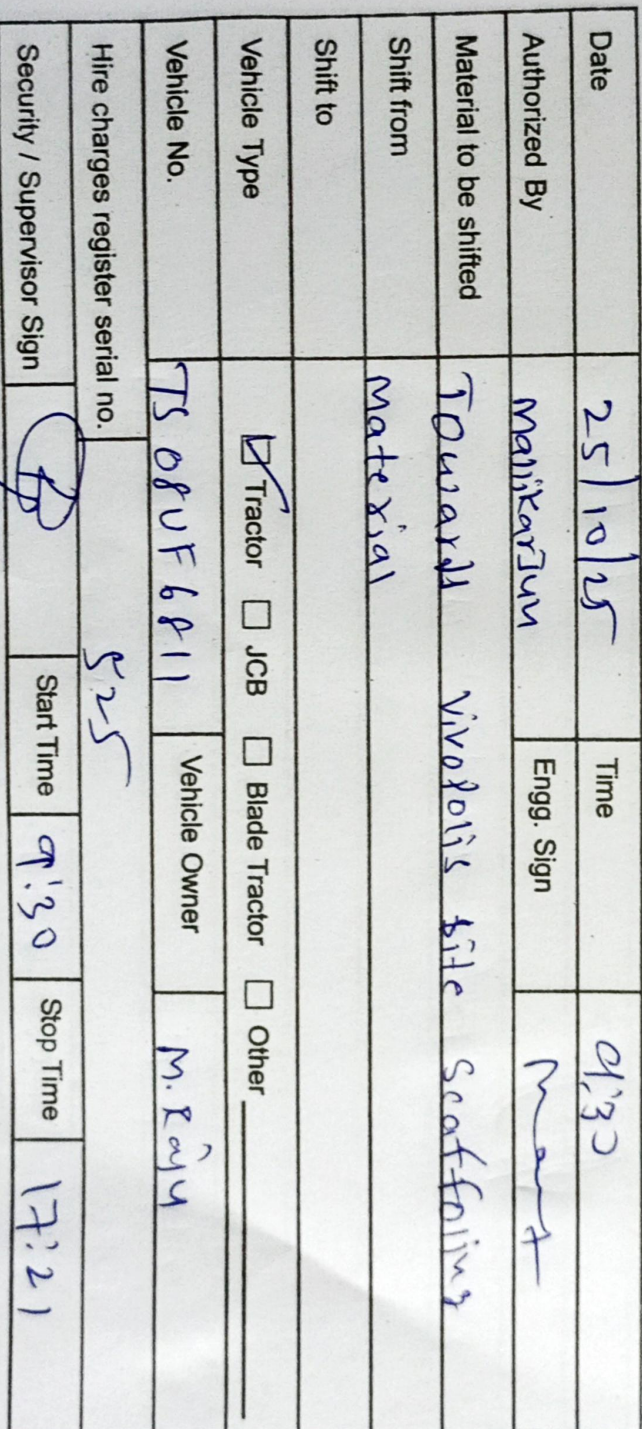 Date 25/10/25 Time 9:30
Authorized By MalliKarJun Engg. Sign
Material to be shifted Towards Vivopolis site Scaffoling
Shift from Material
Shift to
Vehicle Type ☑ Tractor ☐ JCB ☐ Blade Tractor ☐ Other
Vehicle No. TS 08UF6811 Vehicle Owner M. Raju
Hire charges register serial no. 525
Security / Supervisor Sign Start Time 9:30 Stop Time 17:21